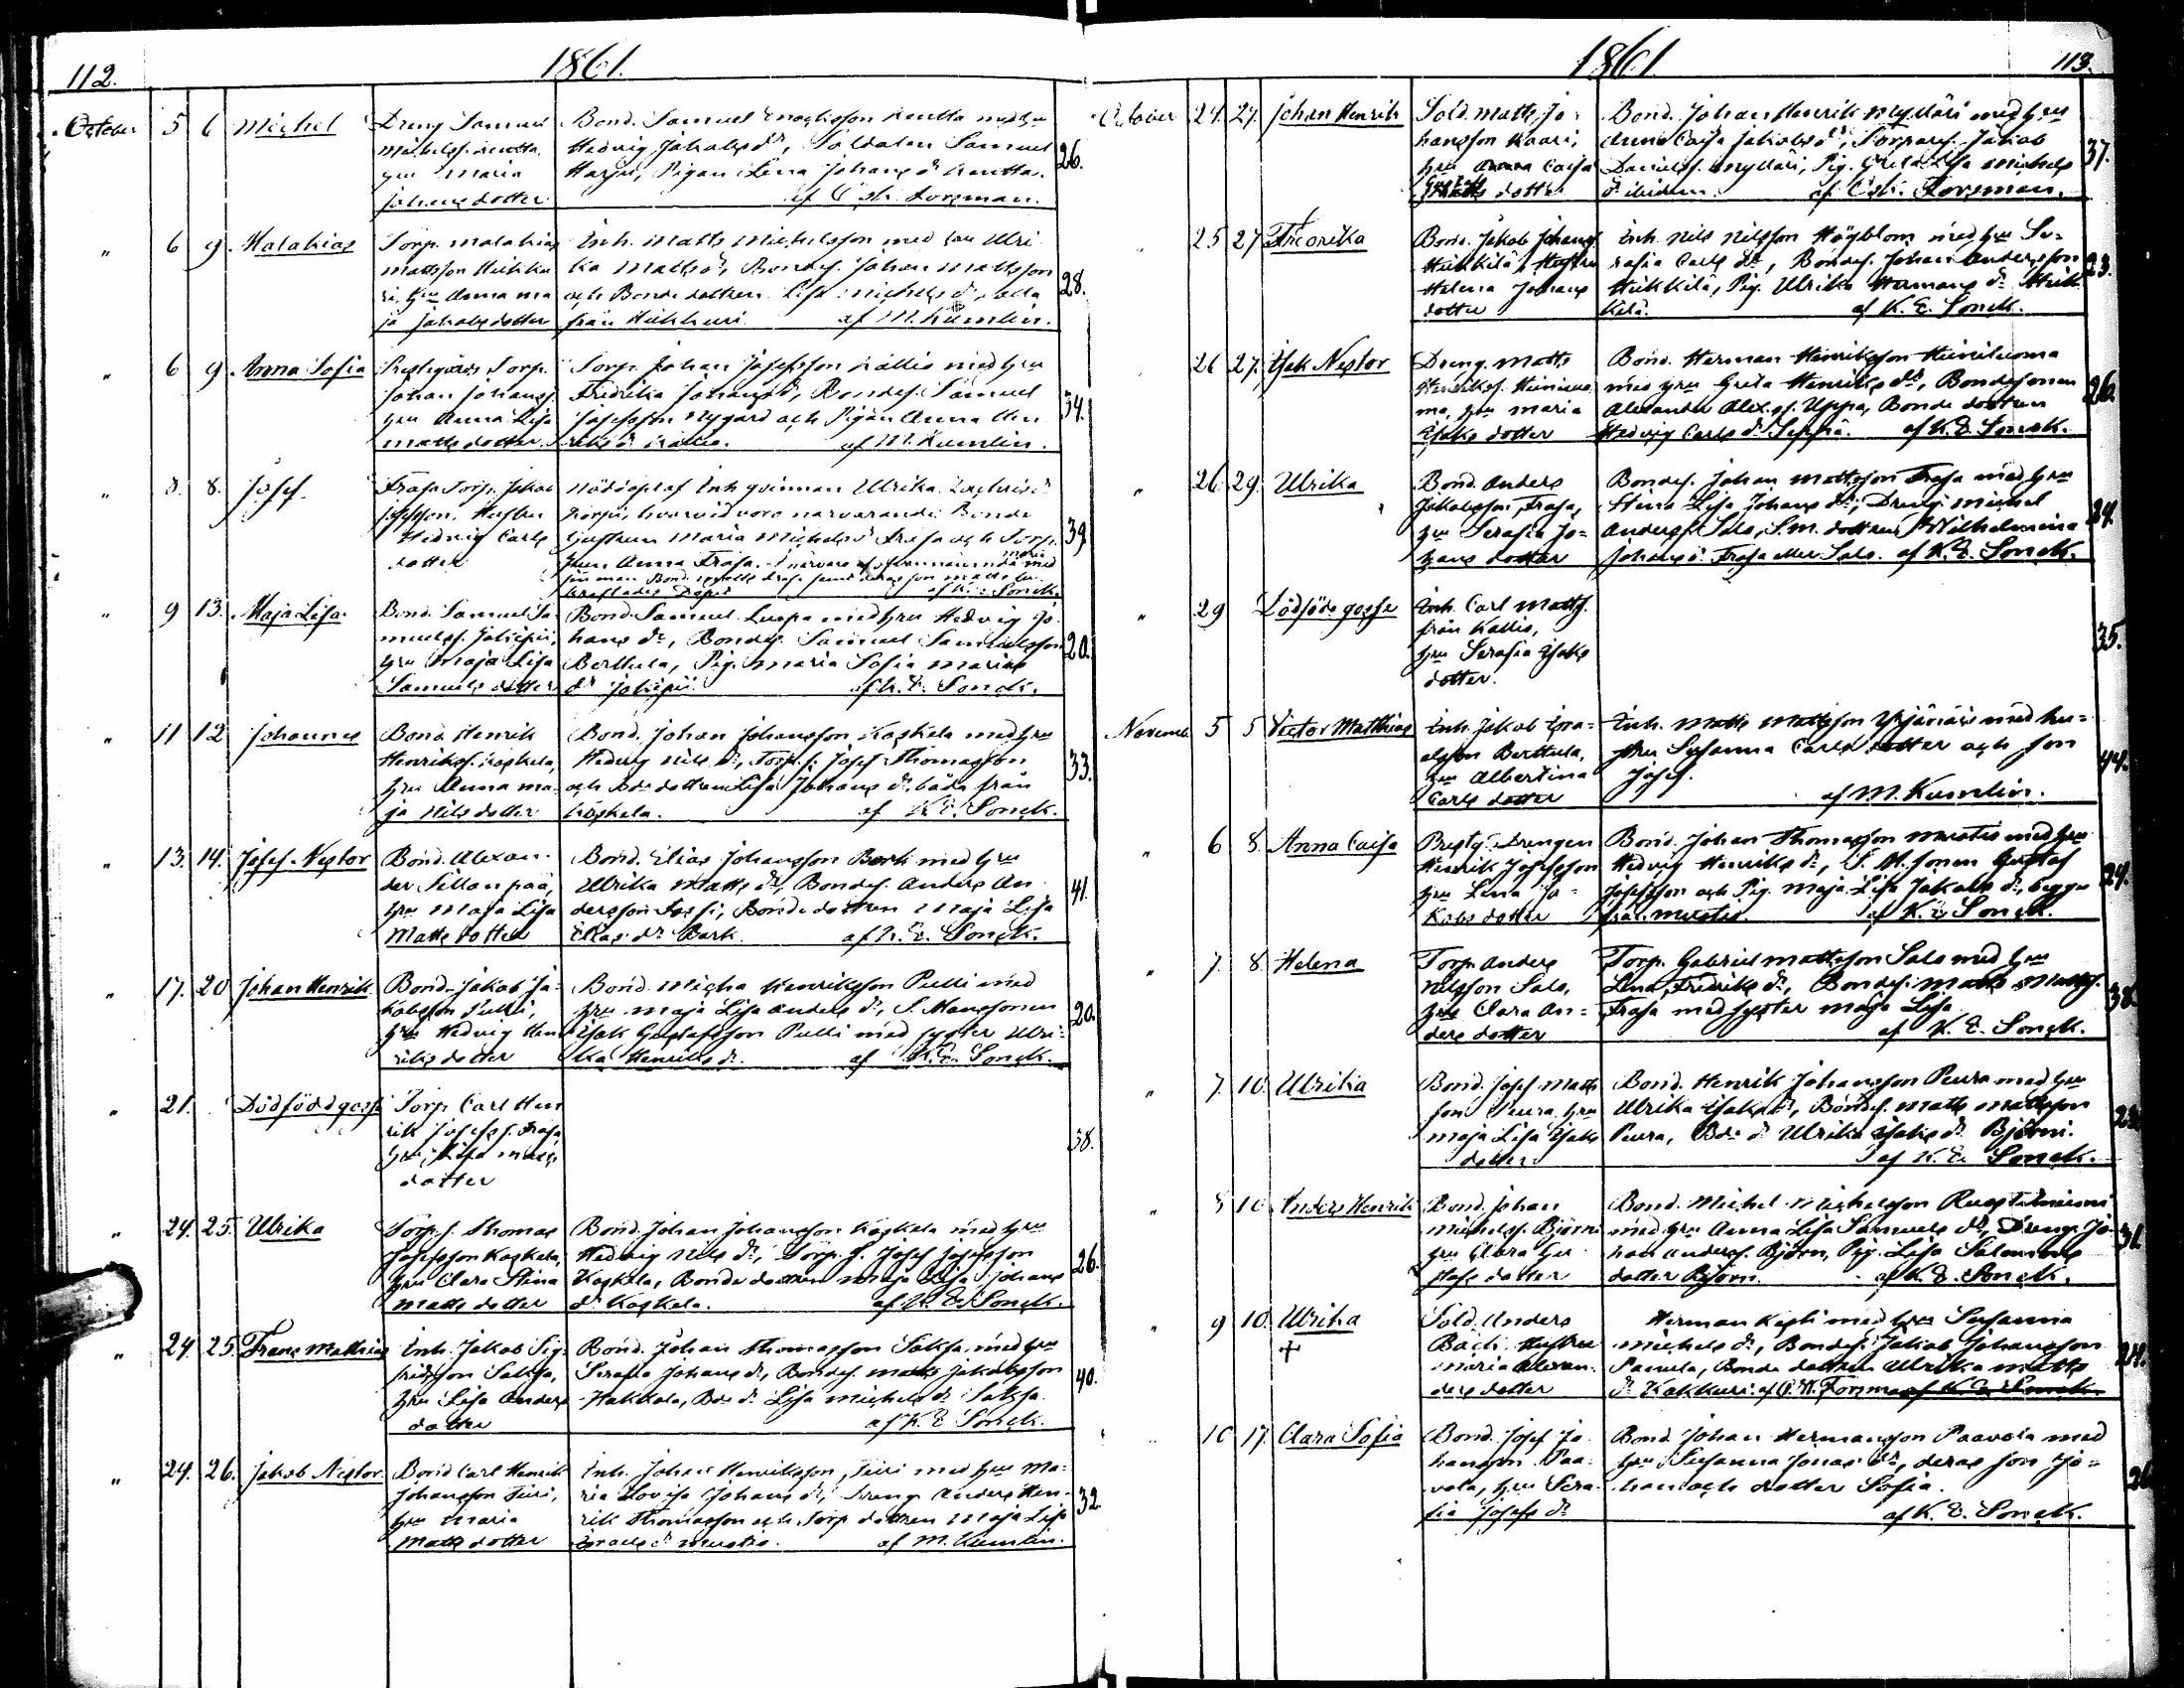 112.
1861.
October 5 6 Michel
Dreng Samuel
hru Maria
Johansdotter
Bond. Samuel Knuttsson med hru
Hedvig Jakobs dr, Soldaten Samuel
Harju, Pigan Lena Johans dr
af C. H. Forsman.
26.
" 6 9 Malakias
Torp. Malakias
Mattsson Hiekku
ri, hru Anna Ma
ja Jakobsdotter
Inh. Matts Michelsson med hru Ulri
ka Mattsdr, Bondes. Johan Mattsson
och Bonde dottren Lisa Michels dr, alla
från Hiekkuri. af M. Kumlin.
28.
" 6 9 Anna Sofia
Prestgårds Torp.
Johan Johanss.
hru Anna Lisa
Matts dotter
Torp. Johan Josefsson Kallio med hru
Fredrika Johansdr, Bondes. Samuel
Josefsson Nygård och Pigan Anna Hen
riksdr Kallio. af M. Kumlin.
34.
" 8. 8. Josef.
Frasa Torp. Jakob
Josefsson, Hustru
Hedvig Carls
dotter
Nöddöpt af Inh. qvinnan Ulrika
hvarvid voro närvarande Bonde
hustrun Maria Michelsdr Frasa och Torp.
hru Anna Frasa.
af K. E. Sonck.
39
" 9 13. Maja Lisa.
Bond. Samuel Sa
muelss. Jakipii,
hru Maja Lisa
Samuels dotter
Bond. Samuel Luopa med hru Hedvig Jo
hans dr, Bondes. Samuel Samuelsson
Berttula, Pig. Maria Sofia Marias
dr Jakipii. af K. E. Sonck.
20.
" 11 12 Johannes
Bond. Henrik
Henrikss. Koskela,
hru Anna Ma
ja Nils dotter
Bond. Johan Johansson Koskela med hru
Hedvig Nils dr, Torp. s. Josef Thomasson
och Bde dottren Lisa Johans dr, båda från
Koskela. af K. E. Sonck.
33.
" 13. 14. Josef Nestor
Bond. Alexan
der Sillanpää,
hru Maja Lisa
Matts dotter
Bond. Elias Johansson Bark med hru
Ulrika Matts dr, Bondes. Anders An
dersson Jossi, Bonde dottren Maja Lisa
Elias dr Bark. af K. E. Sonck.
41.
" 17. 20 Johan Henrik
Bond. Jakob Ja
kobsson Pulli,
hru Hedvig Hen
riks dotter
Bond. Micha Henriksson Pulli med
hru Maja Lisa Anders dr, S. Manssonen
Isak Gustafsson Pulli med syster Ulri
ka Henriks dr. af K. E. Sonck.
20.
" 21. Dödfödd gosse
Torp. Carl Hen
rik Josefss. Frasa,
hru Lisa Matts
dotter
38.
" 24. 25. Ulrika
Torp. s. Thomas
Josefsson Koskela,
hru Clara Stina
Matts dotter
Bond. Johan Johansson Koskela med hru
Hedvig Nils dr, Torp. s. Josef Josefsson
Koskela, Bonde dottren Maja Lisa Johans
dr Koskela. af K. E. Sonck.
26.
" 24. 25. Frans Mathias
Inh. Jakob Sig
fridsson Saksa,
hru Lisa Anders
dotter
Bond. Johan Thomasson Saksa med hru
Serafia Johans dr, Bondes. Matts Jakobsson
Hakkola, Bde dr Lisa Michels dr Saksa.
af K. E. Sonck.
40.
" 24. 26. Jakob Nestor
Bond Carl Henrik
Johansson Tiiri,
hru Maria
Matts dotter
Inh. Johan Henriksson, Tiiri med hru Ma=
ria Lovisa Johans dr, Dreng Anders Hen=
rik Thomasson och Torp dottren Maja Lisa
Israels dr Mustio. af M. Kumlin.
32.
1861
113.
October 24. 27. Johan Henrik
Sold. Matts Jo
hansson Kaari,
hru Anna Caisa
dotter
Bond. Johan Henrik Myllari med hru
Anna Caisa Jakobs dr, Torpares. Jakob
Danielss. Myllari, Pig. Greta Lisa Michels
dr af C. H. Forsman.
37.
25 27 Fredrika
Bond. Jakob Johanss.
Heikkilä, Hustru
Helena Johans
dotter
Inh. Nils Nilsson Högblom med hru Se=
rafia Carls dr, Bondes. Johan Andersson
Heikkilä, Pig. Ulrika Hermans dr Heik
kilä. af K. E. Sonck.
23.
26 27. Isak Nestor
Dreng. Matts
Henrikss. Heiniluo
ma, hru Maria
Isaks dotter
Bond. Herman Henriksson Heiniluoma
med hru Greta Henriks dr, Bondesonen
Alexander Alex. s. Uppa, Bonde dottren
Hedvig Carls dr Seppä. af K. E. Sonck.
26.
" 26. 29. Ulrika
Bond. Anders
Jakobsson, Frasa,
hru Serafia Jo=
hans dotter
Bondes. Johan Mattsson Frasa med hru
Stina Lisa Johans dr, Dreng. Michel
Anderss. Salo, S. M. dottren Wilhelmina
Johans dr Frasa eller Salo. af K. E. Sonck.
24.
" 29 Dödfödd gosse
Inh. Carl Matts.
från Kallio,
hru Serafia Isaks
dotter.
35.
November 5 5 Victor Matthias
Inh. Jakob Isra=
elsson Berttula,
hru Albertina
Carls dotter
Inh. Matts Mattsson Ypäjärvi med hu=
stru Susanna Carls dotter och son
Josef.
af M. Kumlin.
44.
" 6 8. Anna Caisa
Prestg. Drengen
Henrik Josefsson
hru Lena Ja=
kobs dotter
Bond. Johan Thomasson Mustio med hru
Hedvig Henriks dr, S. M. sonen Gustaf
Josefsson och Pig. Maja Lisa Jakobs dr, begge
från Mustio. af K. E. Sonck.
24.
" 7. 8. Helena
Torp. Anders
Nilsson Salo,
hru Clara An=
ders dotter
Torp. Gabriel Mattsson Salo med hru
Lena Fredriks dr, Bondes. Matts Matts.
Frasa med syster Maja Lisa.
af K. E. Sonck.
38.
" 7. 10. Ulrika
Bond. Josef Matts
son Peura, hru
Maja Lisa Isaks
dotter
Bond. Henrik Johansson Peura med hru
Ulrika Isaks dr, Bondes. Matts Mattsson
Peura, Bde dr Ulrika Isaks dr Björni.
af K. E. Sonck.
" 8 10. Anders Henrik
Bond. Johan
Michelss. Björni
hru Clara Gu
stafs dotter
Bond. Michel Michelsson
med hru Anna Lisa Samuels dr, Dreng. Jo
han Anderss. Björn, Pig. Lisa Salomons
dotter Björn. af K. E. Sonck.
31.
" 9 10. Ulrika
+
Sold. Anders
Bäck Hustru
Maria Alexan
ders dotter
Herman Kesti med hru Susanna
Michels dr, Bondes. Jakob Johansson
Panula, Bonde dottren Ulrika Matts
dr Kokkuri. af C. H. Forsman af K. E. Sonck.
" 10 17. Clara Sofia
Bond. Josef Jo
hansson Paa=
vola, hru Sera
fia Josefs dr
Bond. Johan Hermansson Paavola med
hru Susanna Jonas dr, deras son Jo=
han och dotter Sofia.
af K. E. Sonck.